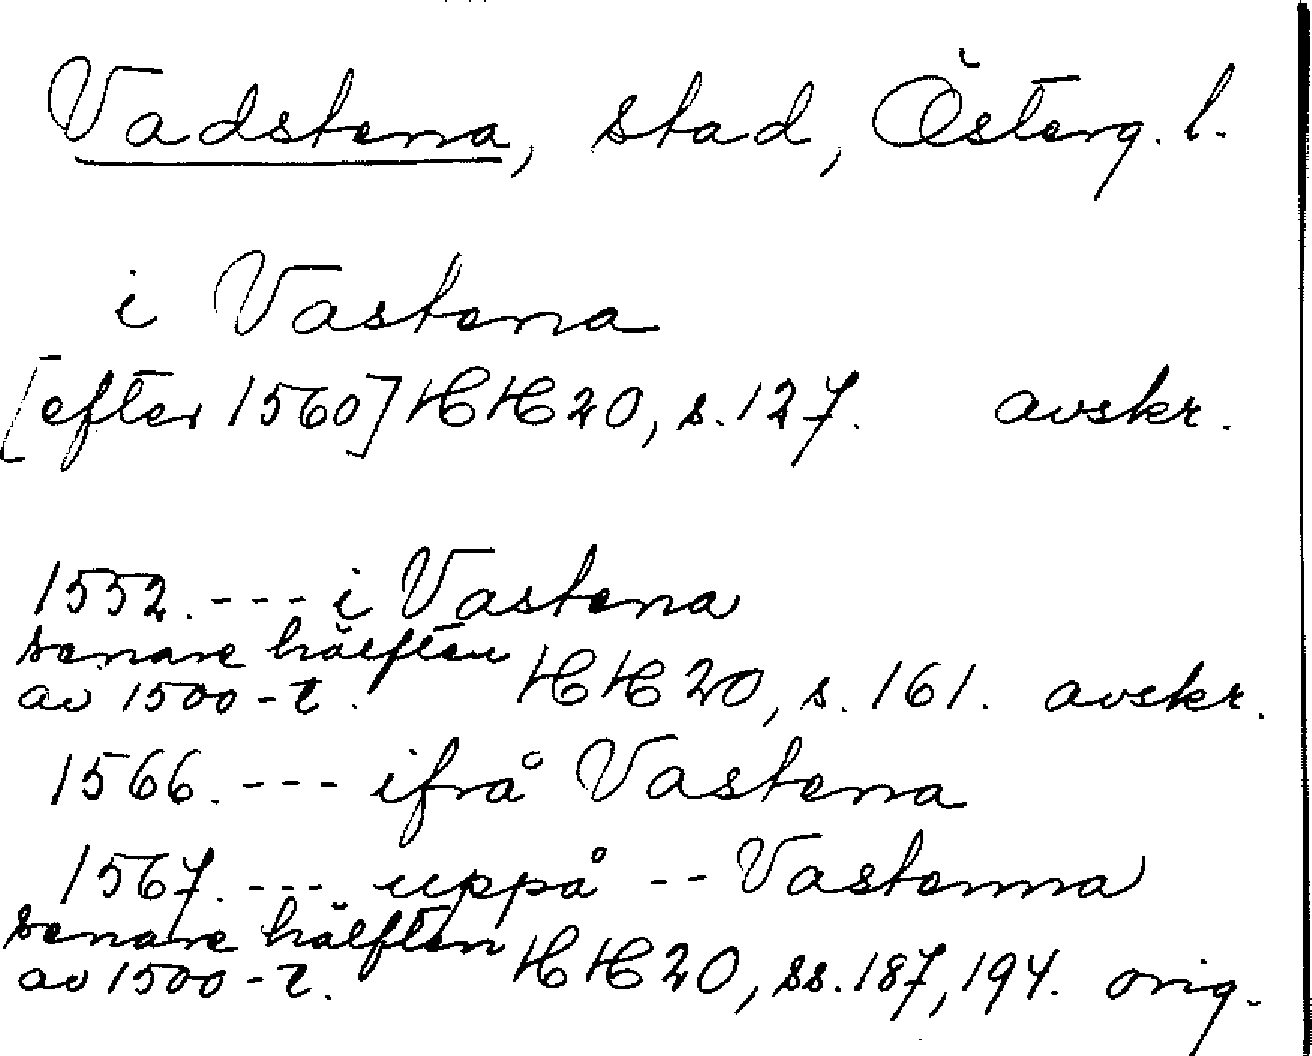 Vadstena, stad, Österg. l.
i Vastena
[efter 1560] HH 20, s. 127. avskr.
1552. --- i Vastena
senare hälften
av 1500-t. HH 20, s. 161. avskr.
1566. --- ifrå Vastena
1567. --- uppå -- Vastenna
senare hälften
av 1500-t. HH 20, ss. 187, 194. orig.